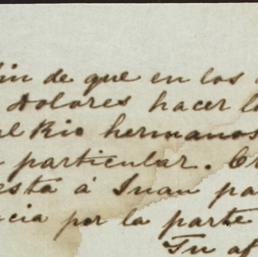 fin de que en los
Dolores hacer
Rio hermanos
particular.
esta á Juan
cia por la parte
Tu